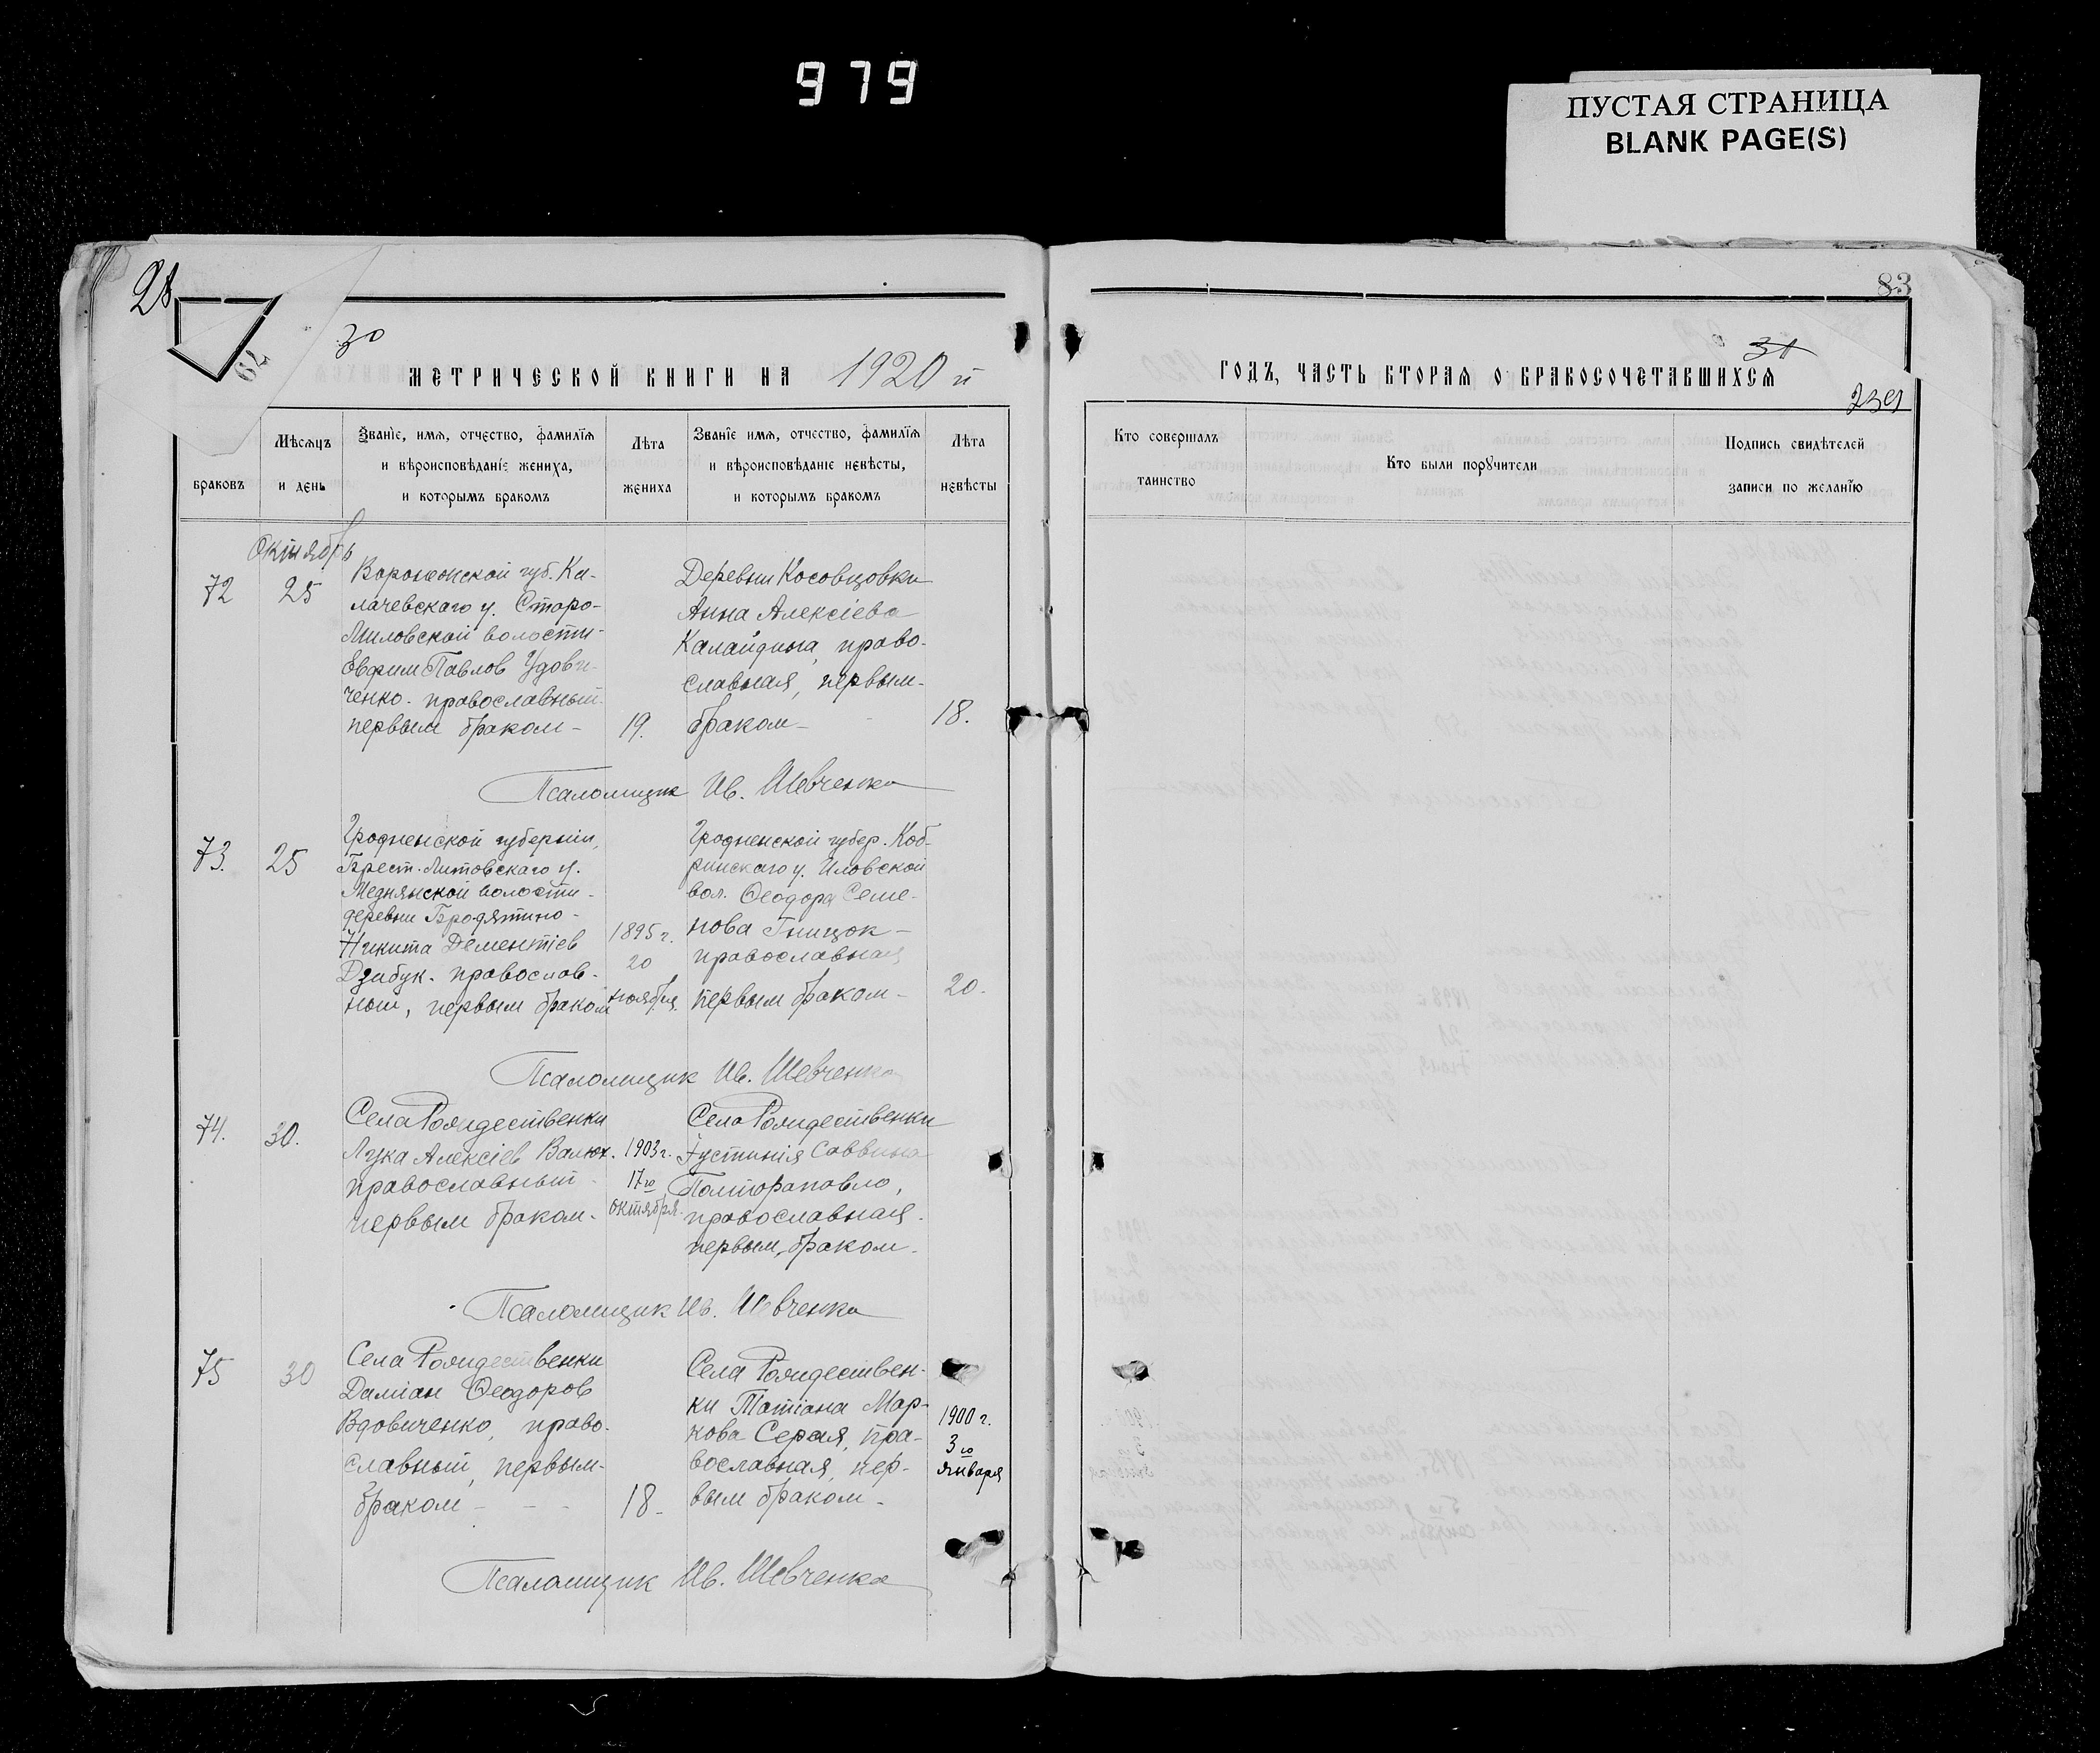 979
ПУСТАЯ СТРАНИЦА
BLANK PAGE(S)
28
79
30
МЕТРИЧЕСКОЙ КНИГИ НА 1920 й
браковъ
Мѣсяцъ
и день
Званіе, имя, отчество, фамилія
и вѣроисповѣданіе жениха,
и которымъ бракомъ
Лѣта
жениха
Званіе имя, отчество, фамилія
и вѣроисповѣданіе невѣсты,
и которымъ бракомъ
Лѣта
невѣсты
Октябрь
72
25
Воронежской губ. Ка-
лачевскаго у. Старо-
Миловской волости-
Евфим Павлов Удови-
ченко. православный.
первым браком-
19.
Деревни Косовцовки
Анна Алексіева
Калайдина, право-
славная, первым-
браком-
18.
Псаломщик Ив. Шевченко
73.
25
Гродненской губерніи,
Брест-Литовскаго у.
Меднянской волости-
деревни Бродятино-
Никита Дементіев
Дзибук. православ-
ный, первым браком
1895 г.
20
ноября.
Гродненской губер. Коб-
ринскаго у. Иловской
вол. Ѳеодора Семе-
нова Гницок-
православная
первым браком-
20.
Псаломщик Ив. Шевченко
74.
30.
Села Рождественки
Лука Алексіев Валюх.
православный-
первым браком-
1903 г.
17го
октября.
Села Рождественки
Іустинія Саввина
Полторапавло,
православная.
первым, браком-
Псаломщик Ив. Шевченко
75
30
Села Рождественки
Даміан Ѳеодоров
Вдовиченко, право-
славный, первым-
браком - - -
18-
Села Рождествен-
ки Татіана Мар-
кова Серая, пра-
вославная, пер-
вым браком-
1900 г.
3го
января
Псаломщик Ив. Шевченко
83
31
ГОДЪ, ЧАСТЬ ВТОРАЯ О БРАКОСОЧЕТАВШИХСЯ
Кто совершалъ
таинство
Кто были поручители
Подпись свидѣтелей
записи по желанію